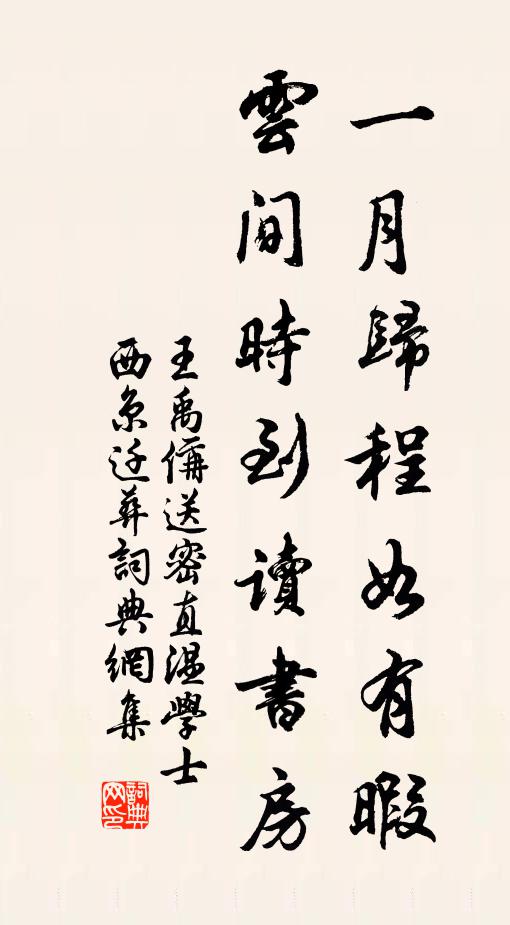 一月歸程如有暇
雲間時到讀書房
王禹偁送密直温學士
西京迁葬詞典網集
詞典网印